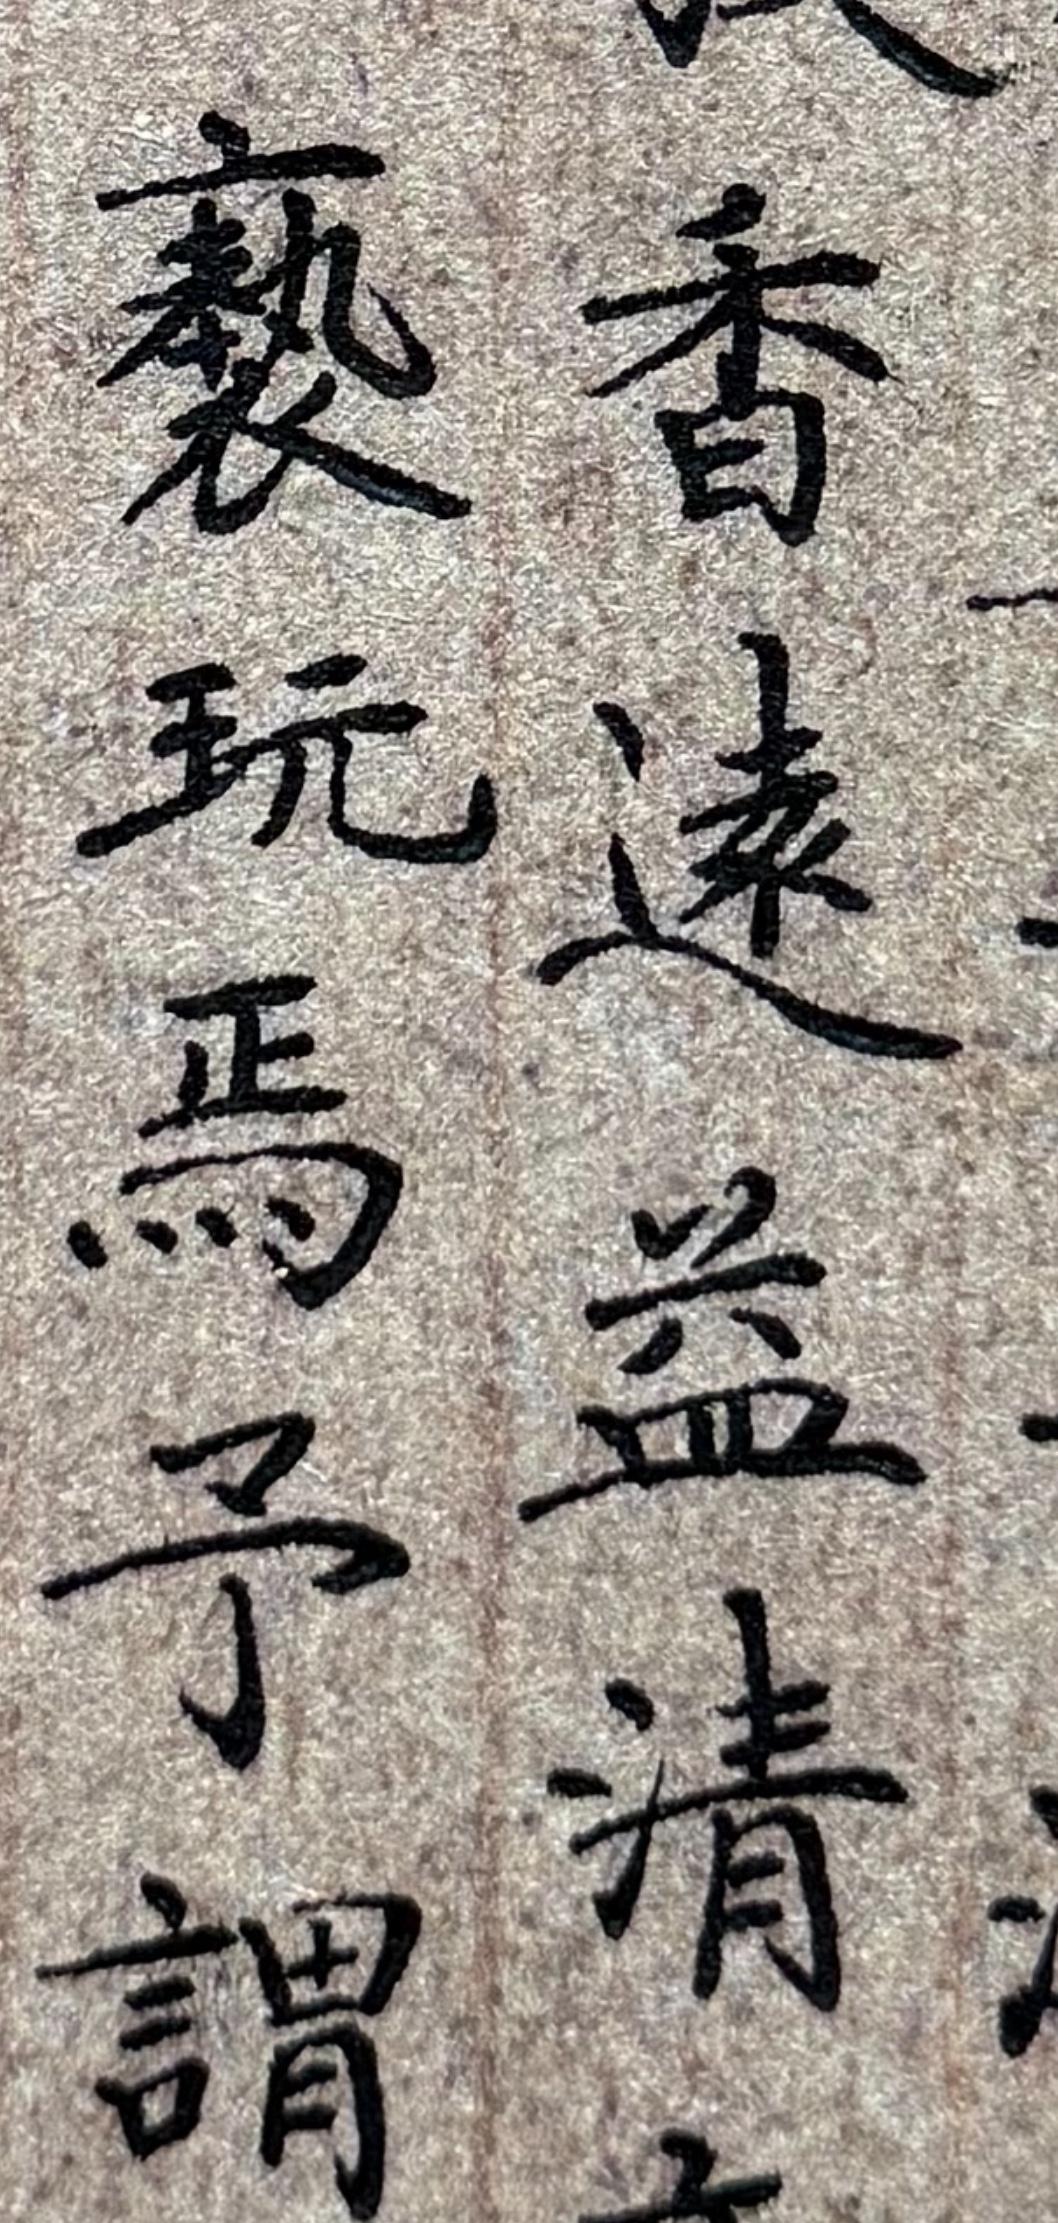 香遠益清
褻玩焉予謂